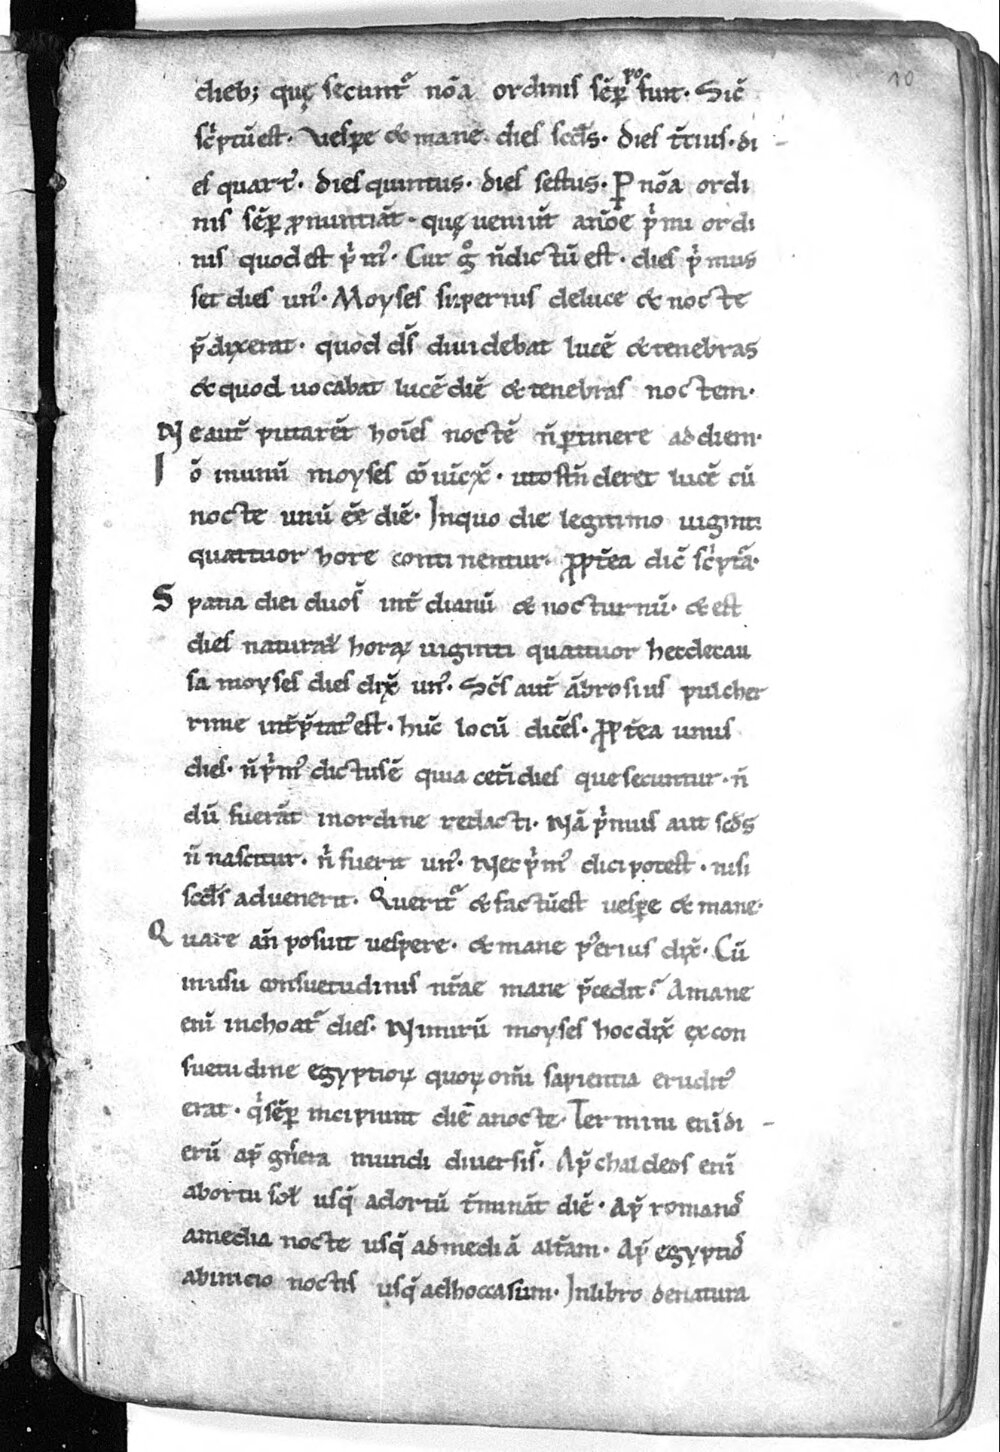 10
dieb; quę secunt᷑ nōa ordinis sēp po sunt. Sic̄
sc̓ptū est. Vespe & mane. dies scd̄s. dies t̄tius. di
es quart᾿. dies quintus. dies sextus. P nōa ordi
nis sēp p̱nuntiāt. quę veniūt an̄oe p̓mi ordi
nis quod est p̓m᾿. Cur g° n̄ dictū est. dies p̓mus
set dies un᾿. Moyses superius de luce & nocte
p̄dixerat. quod ds̄ dividebat lucē & tenebras
& quod vocabat lucē diē & tenebras noctem.
Ne aut̄ putarēt hoīes noctē n̄ ptinere ad diem.
Iō munū moyses  ut ostn̄deret lucē cū
nocte unū eē̄ diē. In quo die legitimo viginti
quattuor hore continentur. ꝓpt̄ea dic̄ sc̓ptā.
Spatia diei duos̄ int̄ dianū & nocturnū. & est
dies natural̄ horaꝝ viginti quattuor hec de cau
sa moyses dies dix̄ un᾿. Sc̄s aut̄ ābrosius pulcher
rime int̄p̄tat᾿ est. hūc locū dicēs. ꝓpt̄ea unus
dies. n̄ p̓m᾿ dictus ē quia cet̄i dies que secuntur. n̄
dū fuerāt in ordine redacti. Nā p̓mus aut scd̄s
n̄ nascitur. n̓ fuerit un᾿. Nec p̓m᾿ dici potest. nisi
scd̄s advenerit. Querit᷑ & factū est vespe & mane.
Quare an̄ posuit vespere. & mane p᾿erius dix̄. Cū
in usu consuetudinis nr̄ae mane p̄cedit? A mane
enī inchoat᷑ dies. Nimirū moyses hoc dix̄ ex con
suetudine egyptioꝝ quoꝝ om̄i sapientia erudit᾿
erat. q̓ sēp incipiunt diē a nocte. Termini enī di
erū ap̄ gn̄era mundi diversis̄. Ap̄ chaldeos enī
ab ortu sol̄ usq̄ ad ortū t̄mināt diē. Ap̄ romano᷒
a media nocte usq̄ ad mediā alt̄am. Ap̄ egyptio᷒
ab inicio noctis usq̄ ad hoccasum. In libro de natura